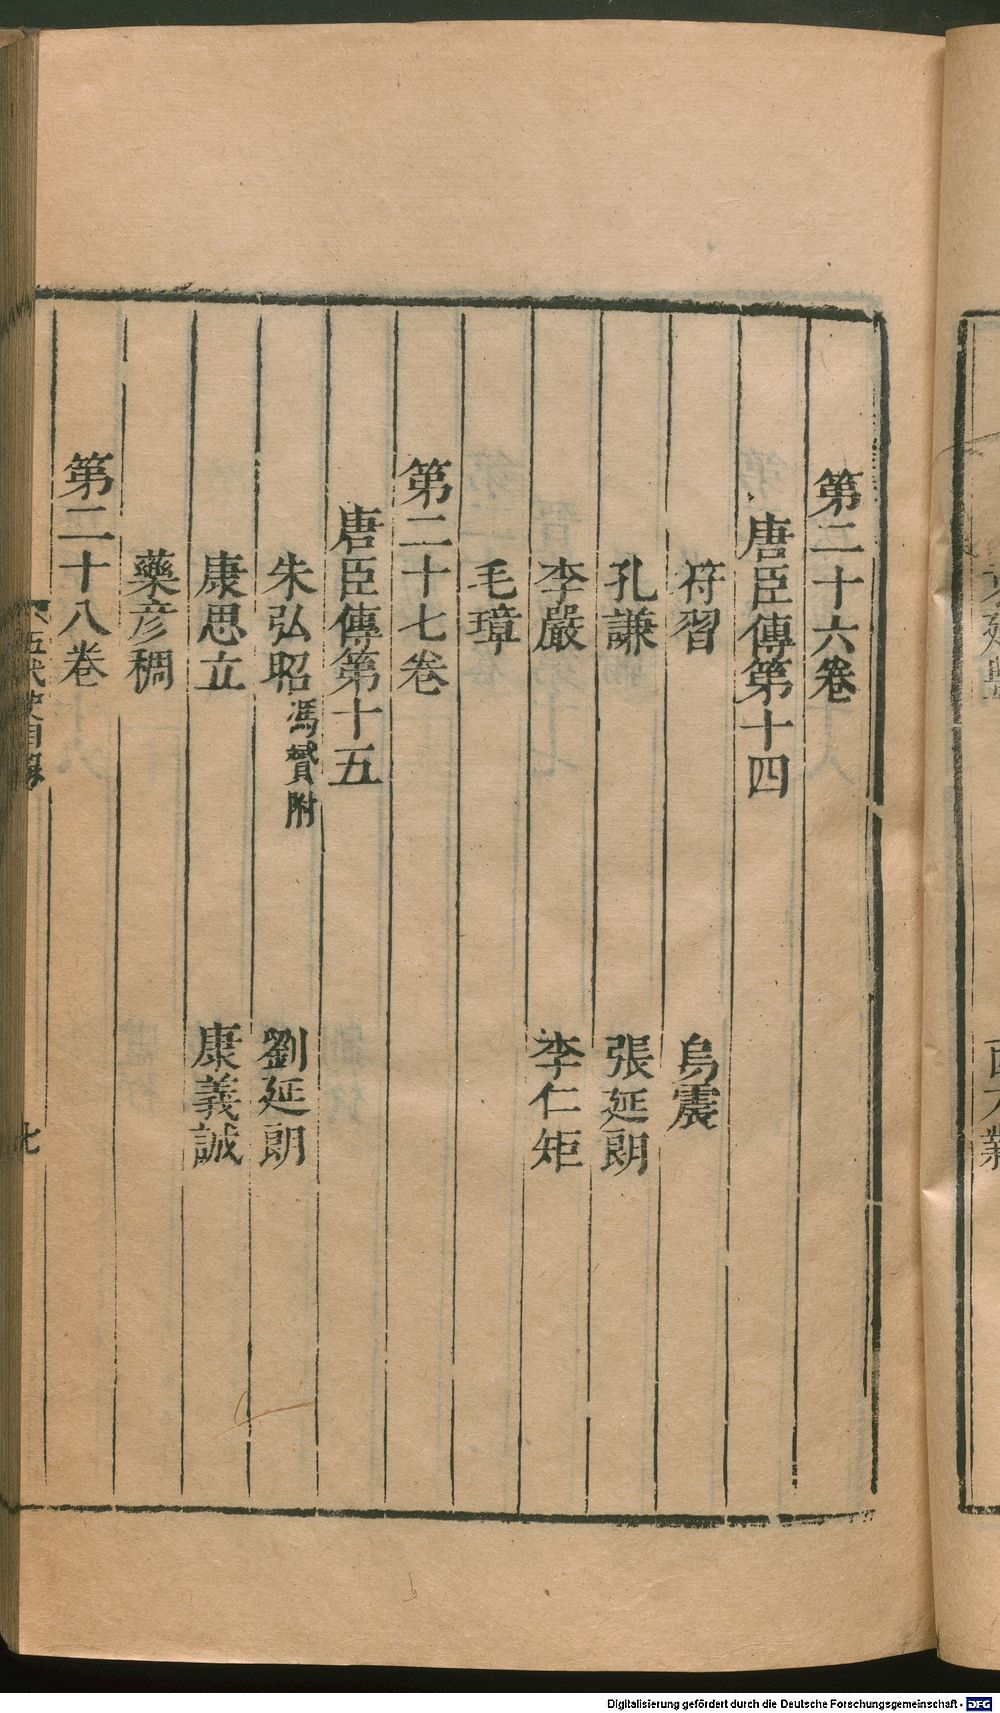 第二十六卷
唐臣傳第十四
符習 烏震
孔謙 張延朗
李嚴 李仁矩
毛璋
第二十七卷
唐臣傳第十五
朱弘昭 馮贇附 劉延朗
康思立 康義誠
藥彥稠
第二十八卷
五代史目錄 七
Digitalisierung gefördert durch die Deutsche Forschungsgemeinschaft - DFG